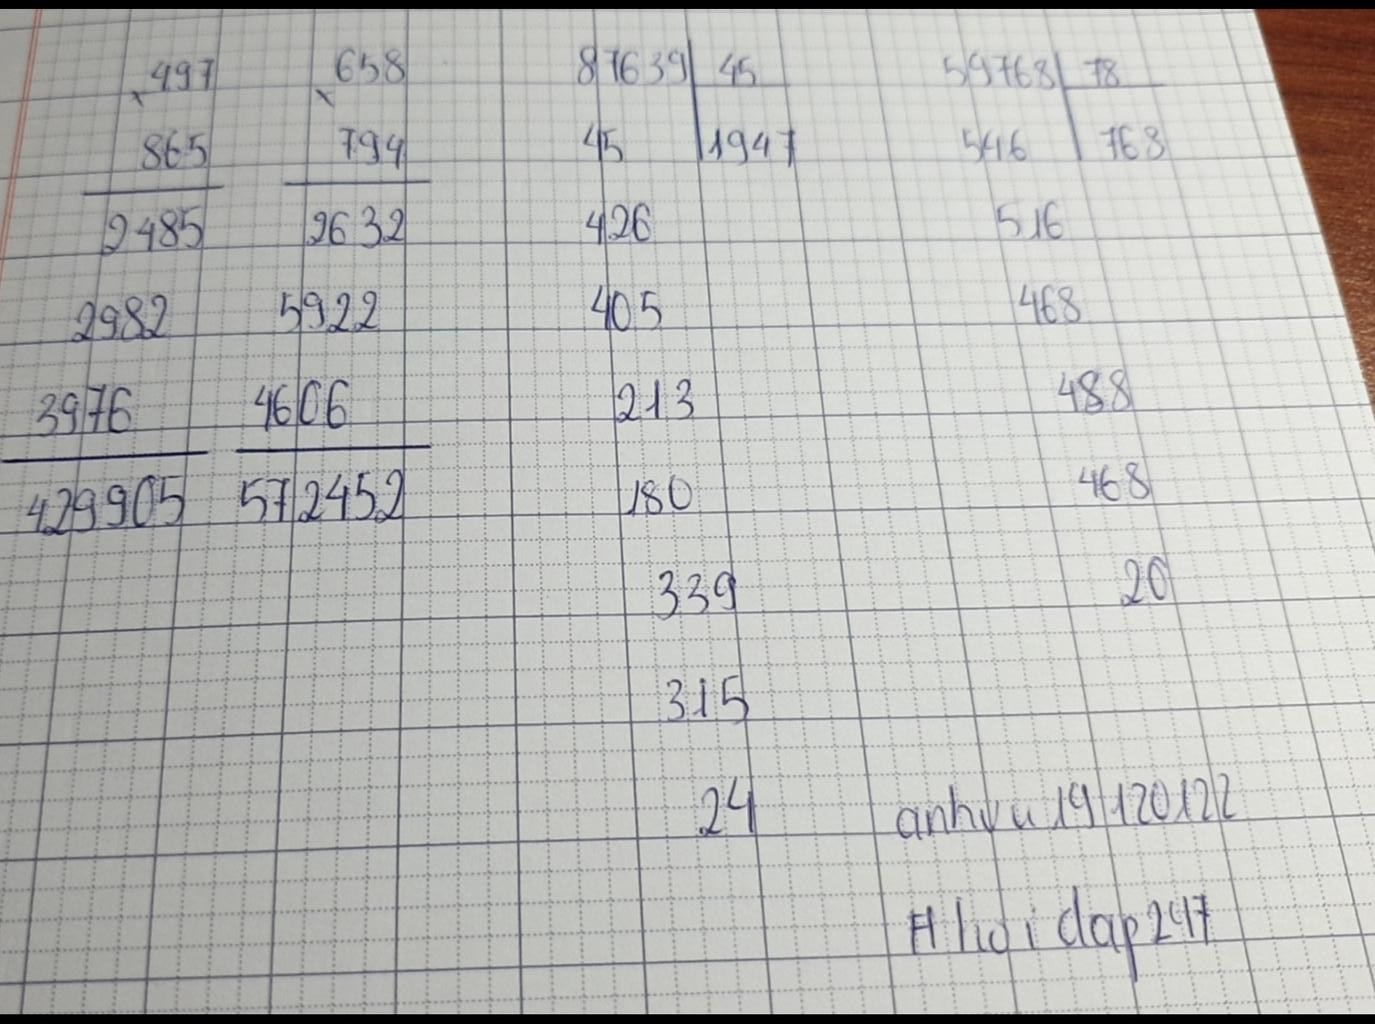 497
865
2485
2982
3976
429905
658
794
2632
5922
4606
572452
87639 45
45 1947
426
405
213
180
339
315
24
59768 78
546 768
516
468
488
468
20
anhvu19120122
#hoidap247